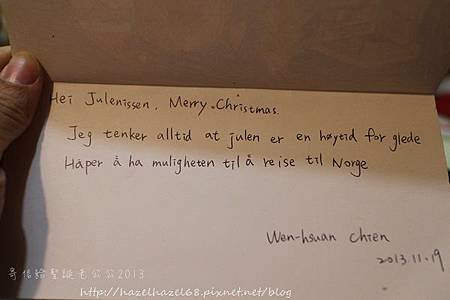 Hei Julenissen, Merry Christmas.
Jeg tenker alltid at julen er en høytid for glede
Håper å ha muligheten til å reise til Norge
Wen-hsuan Chien
2013.11.19
寄信給聖誕老公公2013
http://hazelhazel68.pixnet.net/blog